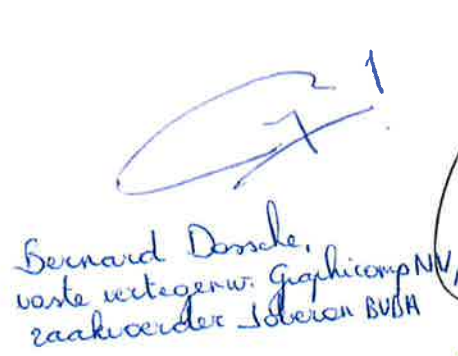 Bernard Dossche,
vaste vertegenw. Graphicomp NV,
zaakvoerder Soberon BVBA